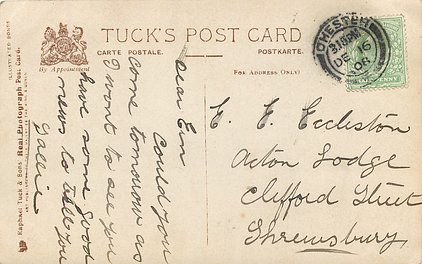 TUCK'S POST CARD
CARTE POSTALE.
POSTKARTE.
By Appointment
(FOR ADDRESS ONLY)
ILLUSTRATED BOOKS
Raphael Tuck & Sons Real Photograph Post Card.
CHESTER
DE 16
08
PENNY
Dear Em
Could you
come tomorrow as
I want to see you
have some good
news to tell you
E. Eccleston
Acton Lodge
Clifford Street
Shrewsbury